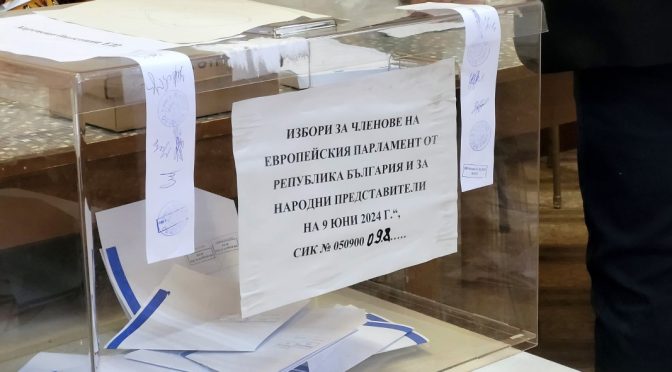 ИЗБОРИ ЗА ЧЛЕНОВЕ НА
ЕВРОПЕЙСКИЯ ПАРЛАМЕНТ ОТ
РЕПУБЛИКА БЪЛГАРИЯ И ЗА
НАРОДНИ ПРЕДСТАВИТЕЛИ
НА 9 ЮНИ 2024 Г.“,
СИК № 050900 098.....